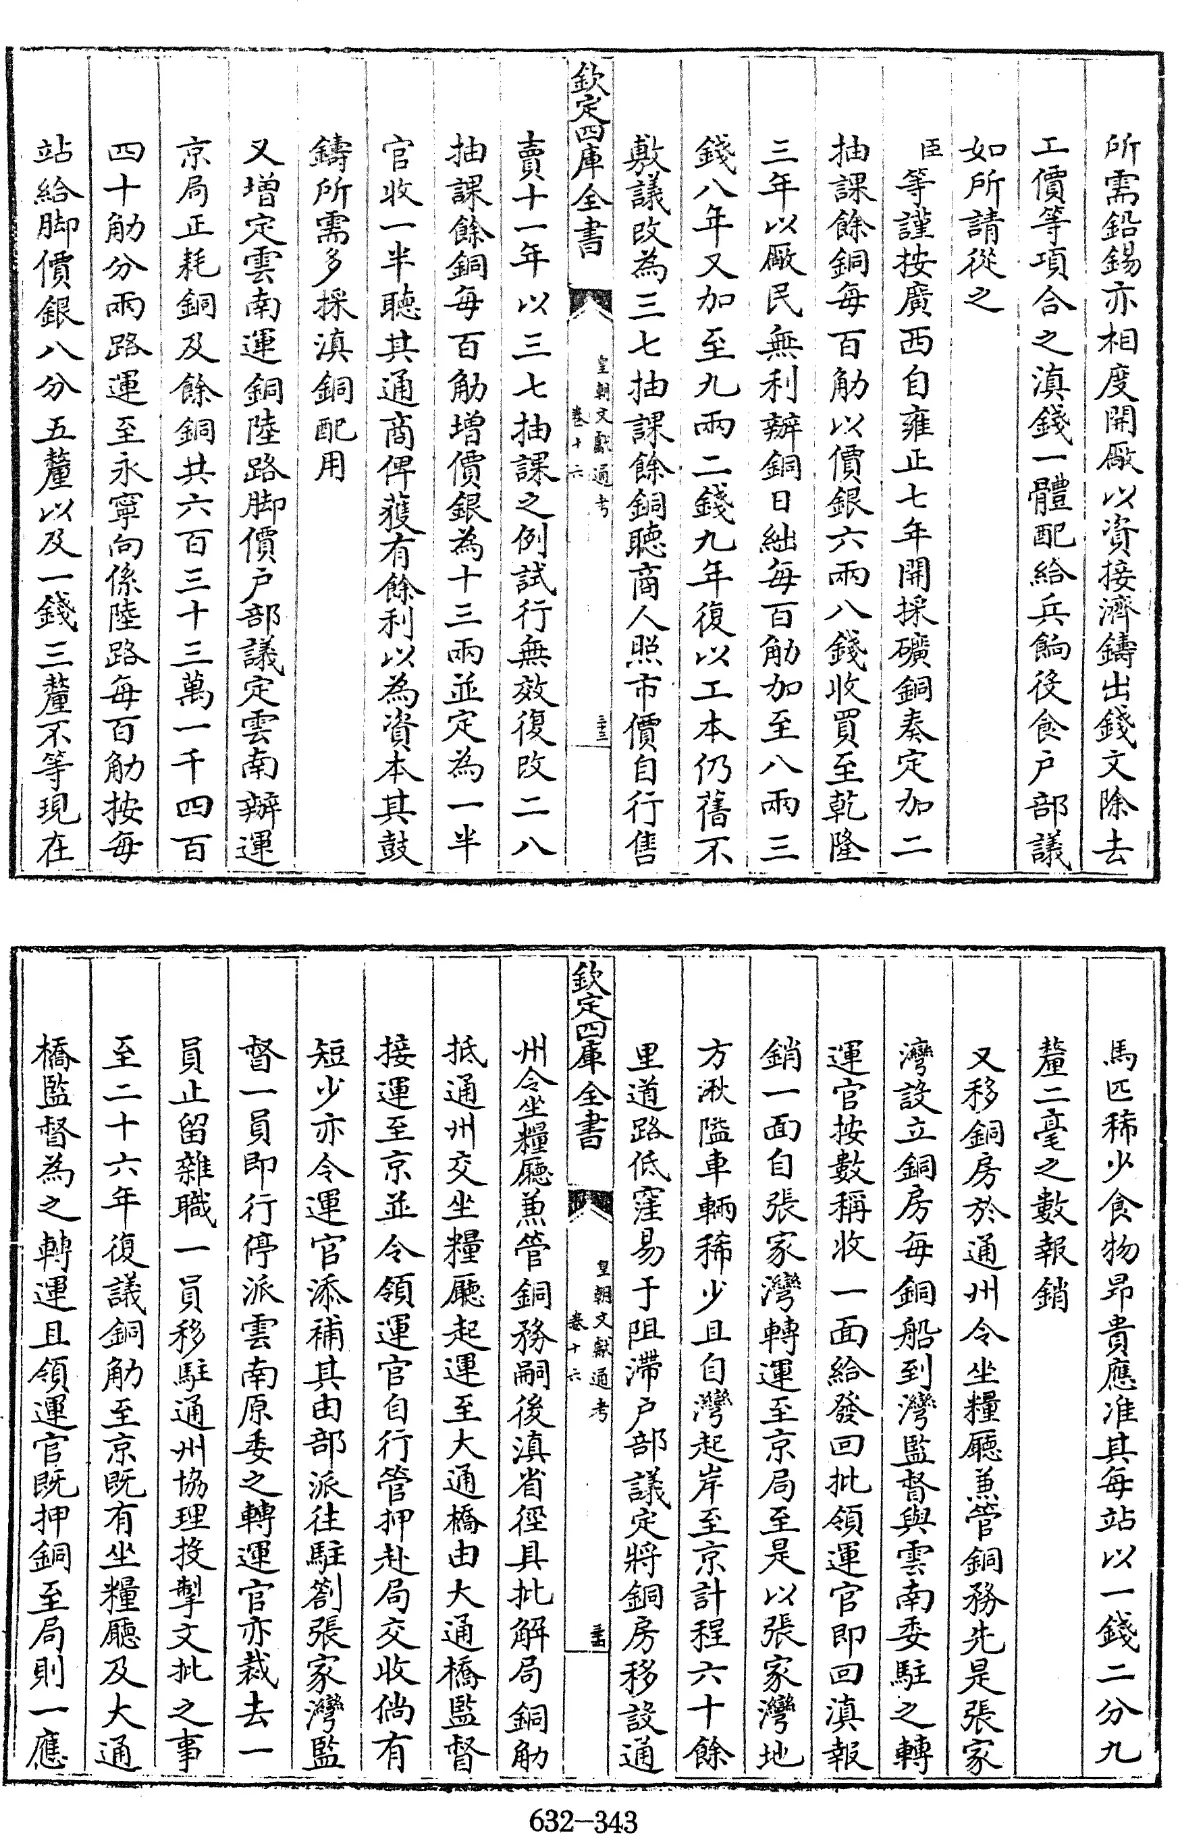 所需鉛錫亦相度開厰以資接濟鑄出錢文除去
工價等項合之滇錢一體配給兵餉役食户部議
如所請從之
臣等謹按廣西自雍正七年開採礦銅奏定加二
抽課餘銅每百觔以價銀六兩八錢收買至乾隆
三年以厰民無利辦銅日絀每百觔加至八兩三
錢八年又加至九兩二錢九年復以工本仍舊不
敷議改為三七抽課餘銅聽商人照市價自行售
欽定四庫全書
皇朝文獻通考
卷十六
三三
賣十一年以三七抽課之例試行無效復改二八
抽課餘銅每百觔增價銀為十三兩並定為一半
官收一半聽其通商俾獲有餘利以為資本其鼓
鑄所需多採滇銅配用
又增定雲南運銅陸路脚價户部議定雲南辦運
京局正耗銅及餘銅共六百三十三萬一千四百
四十觔分兩路運至永寧向係陸路每百觔按每
站給脚價銀八分五釐以及一錢三釐不等現在
馬匹稀少食物昻貴應准其每站以一錢二分九
釐二毫之數報銷
又移銅房於通州令坐糧廳兼管銅務先是張家
灣設立銅房每銅船到灣監督與雲南委駐之轉
運官按數稱收一面給發回批領運官即回滇報
銷一面自張家灣轉運至京局至是以張家灣地
方湫隘車輛稀少且自灣起岸至京計程六十餘
里道路低窪易于阻滯户部議定將銅房移設通
欽定四庫全書
皇朝文獻通考
卷十六
三四
州令坐糧廳兼管銅務嗣後滇省徑具批解局銅觔
抵通州交坐糧廳起運至大通橋由大通橋監督
接運至京並令領運官自行管押赴局交收倘有
短少亦令運官添補其由部派往駐劄張家灣監
督一員即行停派雲南原委之轉運官亦裁去一
員止留雜職一員移駐通州協理投掣文批之事
至二十六年復議銅觔至京既有坐糧廳及大通
橋監督為之轉運且領運官既押銅至局則一應
632-343